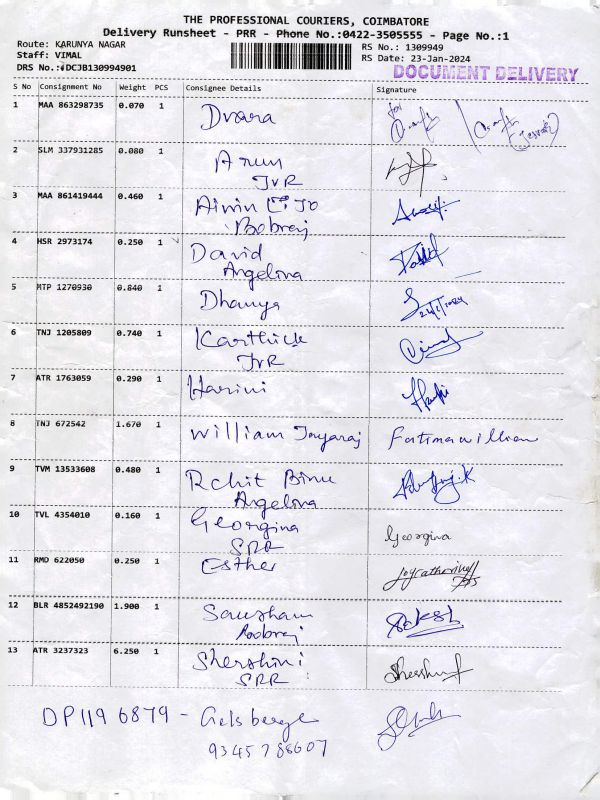 THE PROFESSIONAL COURIERS, COIMBATORE
Delivery Runsheet - PRR - Phone No.:0422-3505555 - Page No.:1
Route: KARUNYA NAGAR
Staff: VIMAL
DRS No.:#DCJB130994901
RS No.: 1309949
RS Date: 23-Jan-2024
DOCUMENT DELIVERY
S No Consignment No Weight PCS Consignee Details Signature
1 MAA 863298735 0.070 1 for
2 SLM 337931285 0.080 1 Arun
JVR
3 MAA 861419444 0.460 1
Bobraj
4 HSR 2973174 0.250 1 David
Angelina
5 MTP 1270930 0.840 1 Dhanya
24/1/2024
6 TNJ 1205809 0.740 1 Karthick
JVR
7 ATR 1763059 0.290 1 Harini
8 TNJ 672542 1.670 1 William Jayaraj Fatima William
9 TVM 13533608 0.480 1 Rohit Binu
Angelina
10 TVL 4354010 0.160 1 Georgina Georgina
SRR
11 RMD 622050 0.250 1 Esther
12 BLR 4852492190 1.900 1
Bobraj
13 ATR 3237323 6.250 1 Shershini
SRR
DP119 6879 -
9345788607